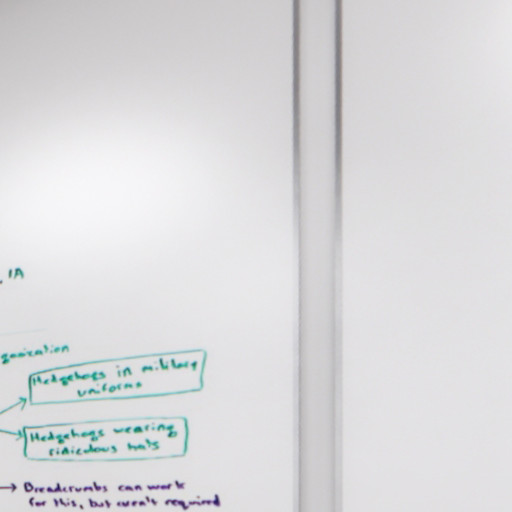 IA
Hedgehogs in military
uniforms
Hedgehogs wearing
ridiculous hats
→ Breadcrumbs can work
for this, but aren't required